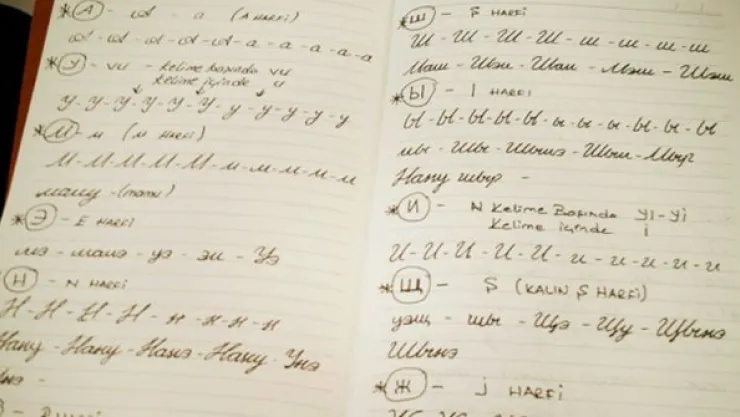 * А - 𝒜 - а (A HARFİ)
А - А - А - А - А - а - а - а - а - а
* У - vu - Kelime Başında vu
Kelime içinde u
У - У - У - У - У - У - у - у - у - у - у - у
* М - м (M HARFİ)
М - М - М - М - М - м - м - м - м - м
маму - (mamu)
* Э - E HARFİ
мэ - мамэ - уэ - эм - Уэ
Н - N HARFİ
Н - Н - Н - Н - н - н - н - н
Нану - Нану - Нанэ - Нану - Унэ
* Ш - Ş HARFİ
Ш - Ш - Ш - Ш - ш - ш - ш - ш
Маш - Шэн - Шан - Мэш - Шэш
* Ы - I HARFİ
Ы - Ы - Ы - Ы - Ы - ы - ы - ы - ы - ы
мы - Шы - Шынэ - Шын - Мыр
Нану шыр -
* И - Kelime Başında yı - yi
Kelime içinde i
И - И - И - И - И - и - и - и - и - и
* Щ - Ş (KALIN Ş HARFİ)
уэщ - щы - Щэ - Щу - Щынэ
Шынэ
* Ж - J HARFİ